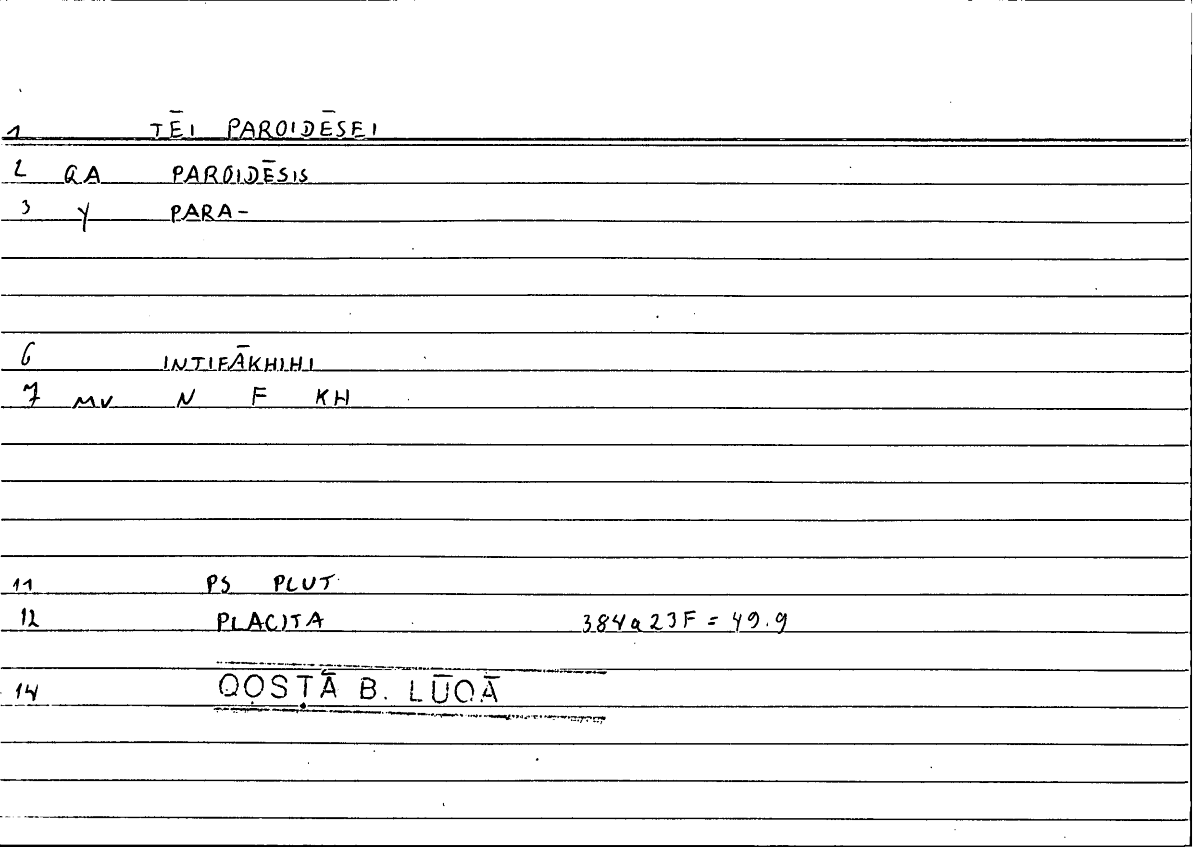 1 TĒI PAROIDĒSEI
2 QA PAROIDĒSIS
3 Y PARA-
6 INTIFĀKHIHI
7 MV N F KH
11 PS PLUT
12 PLACITA 384a23F = 49.9
14 QOSṬĀ B. LŪQĀ